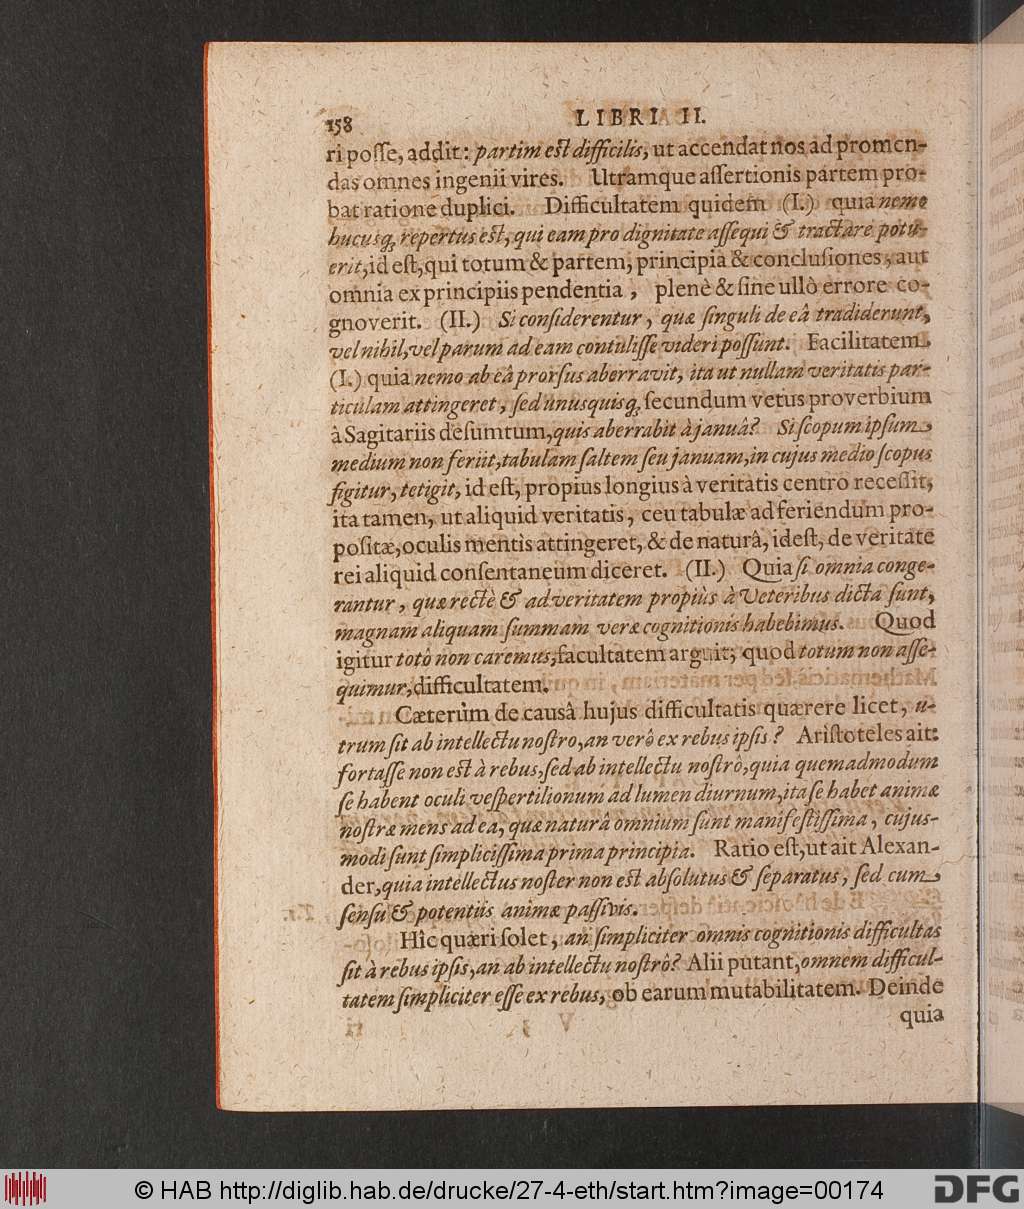 158 LIBRI II.
ri poſſe, addit: partim eſt difficilis, ut accendat nos ad promen-
das omnes ingenii vires. Utramque aſſertionis partem pro-
bat ratione duplici. Difficultatem quidem (I.) quia nemo
hucusq; repertus eſt, qui eam pro dignitate aſſequi & tractare potu-
erit, id eſt, qui totum & partem, principia & concluſiones, aut
omnia ex principiis pendentia, plenè & ſine ullô errore co-
gnoverit. (II.) Si conſiderentur, quæ ſinguli de eâ tradiderunt,
vel nihil, vel parum ad eam contuliſſe videri poſſunt. Facilitatem
(I.) quia nemo ab eâ prorſus aberravit, ita ut nullam veritatis par-
ticulam attingeret, ſed unusquisq; ſecundum vetus proverbium
à Sagitariis deſumtum, quis aberrabit à januâ? Si ſcopum ipſum
medium non feriit, tabulam ſaltem ſeu januam, in cujus medio ſcopus
figitur, tetigit, id eſt, propius longius à veritatis centro receſſit,
ita tamen, ut aliquid veritatis, ceu tabulæ ad feriendum pro-
poſitæ, oculis mentis attingeret, & de naturâ, ideſt, de veritate
rei aliquid conſentaneum diceret. (II.) Quia ſi omnia conge-
rantur, quæ rectè & ad veritatem propiùs à Veteribus dicta ſunt,
magnam aliquam ſummam veræ cognitionis habebimus. Quod
igitur totô non caremus, facultatem arguit; quod totum non aſſe-
quimur, difficultatem.
Cæterùm de causâ hujus difficultatis quærere licet, u-
trum ſit ab intellectu noſtro, an verò ex rebus ipſis? Ariſtoteles ait:
fortaſſe non eſt à rebus, ſed ab intellectu noſtrô, quia quemadmodum
ſe habent oculi veſpertilionum ad lumen diurnum, ita ſe habet animæ
noſtræ mens ad ea, quæ naturâ omnium ſunt manifeſtiſſima, cujus-
modi ſunt ſimpliciſſima prima principia. Ratio eſt, ut ait Alexan-
der, quia intellectus noſter non eſt abſolutus & ſeparatus, ſed cum
ſenſu & potentiis animæ paſſivis.
Hîc quæri ſolet, an ſimpliciter omnis cognitionis difficultas
ſit à rebus ipſis, an ab intellectu noſtrô? Alii putant, omnem difficul-
tatem ſimpliciter eſſe ex rebus, ob earum mutabilitatem. Deinde
quia
© HAB http://diglib.hab.de/drucke/27-4-eth/start.htm?image=00174
DFG